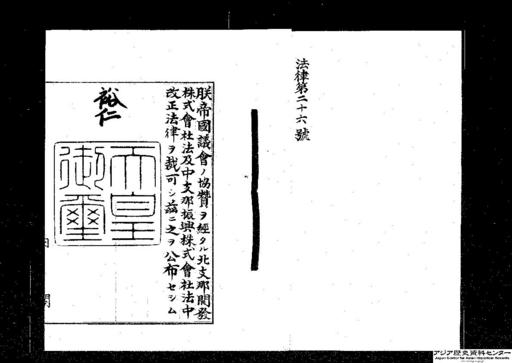 法律第二十六號
朕帝國議會ノ協贊ヲ經タル北支那開發
株式會社法及中支那振興株式會社法中
改正法律ヲ裁可シ茲ニ之ヲ公布セシム
裕仁
天皇
御璽
アジア歴史資料センター
Japan Center for Asian Historical Records